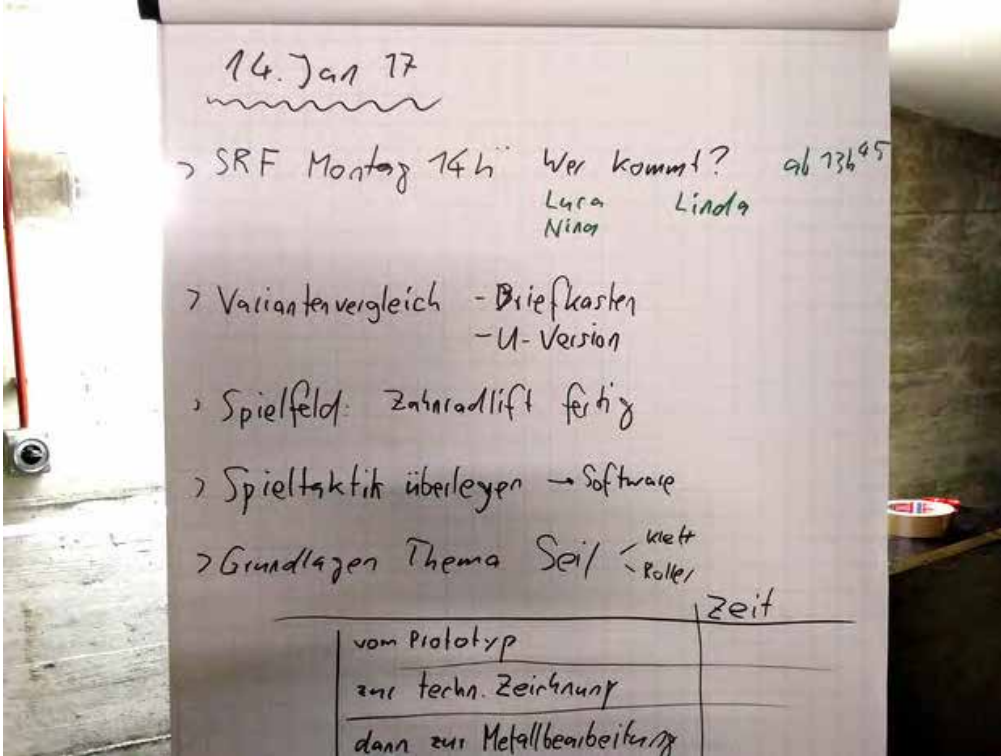 14. Jan 17
> SRF Montag 14h Wer kommt? ab 13h45
Luca Linda
Nina
> Variantenvergleich - Briefkasten
- U-Version
> Spielfeld: Zahnradlift fertig
> Spieltaktik überlegen → Software
> Grundlagen Thema Seil < Klett
Roller
Zeit
vom Prototyp
zur techn. Zeichnung
dann zur Metallbearbeitung